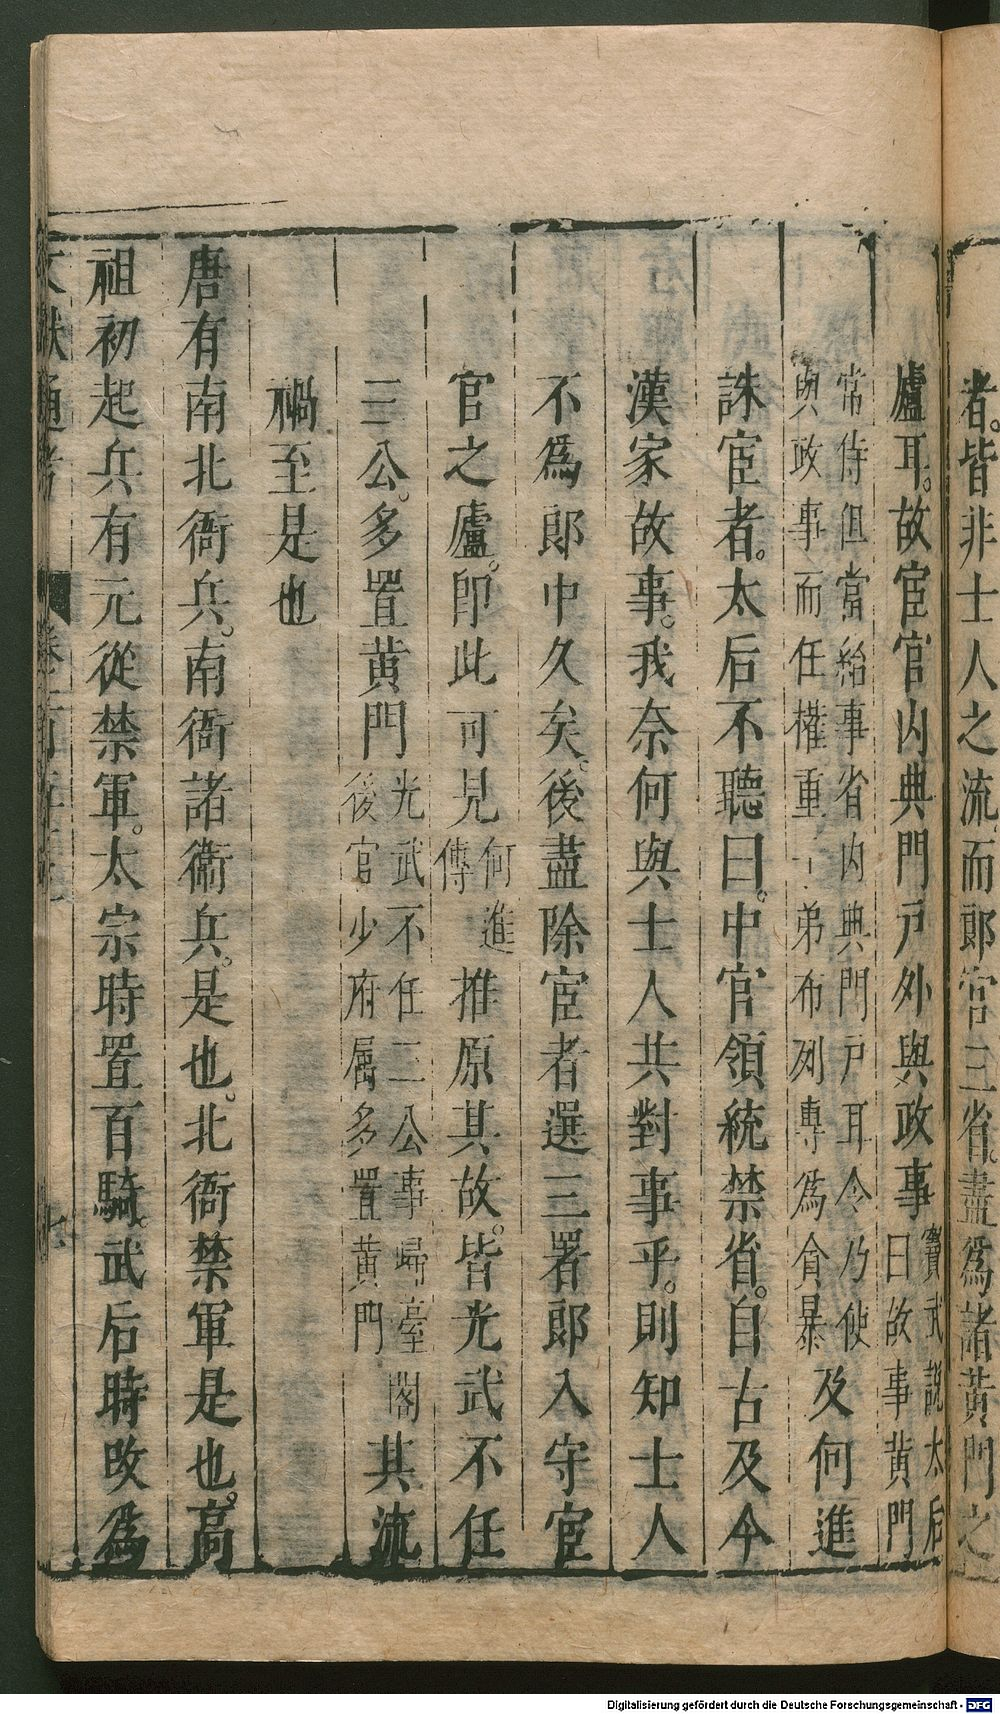 者皆非士人之流而郎官三省盡為諸黃門之
廬耳故宦官內典門戶外與政事竇武說太后曰故事黃門
常侍但當給事省內典門戶耳今乃使與政事而任權重子弟布列專為貪暴及何進
誅宦者太后不聽曰中官領統禁省自古及今
漢家故事我奈何與士人共對事乎則知士人
不為郎中久矣後盡除宦者選三署郎入守宦
官之廬即此可見何進傳推原其故皆光武不任
三公多置黃門光武不任三公事歸臺閣後官少府屬多置黃門其流
禍至是也
唐有南北衙兵南衙諸衛兵是也北衙禁軍是也高
祖初起兵有元從禁軍太宗時置百騎武后時改為
文獻通考 卷一百 七
Digitalisierung gefördert durch die Deutsche Forschungsgemeinschaft - DFG